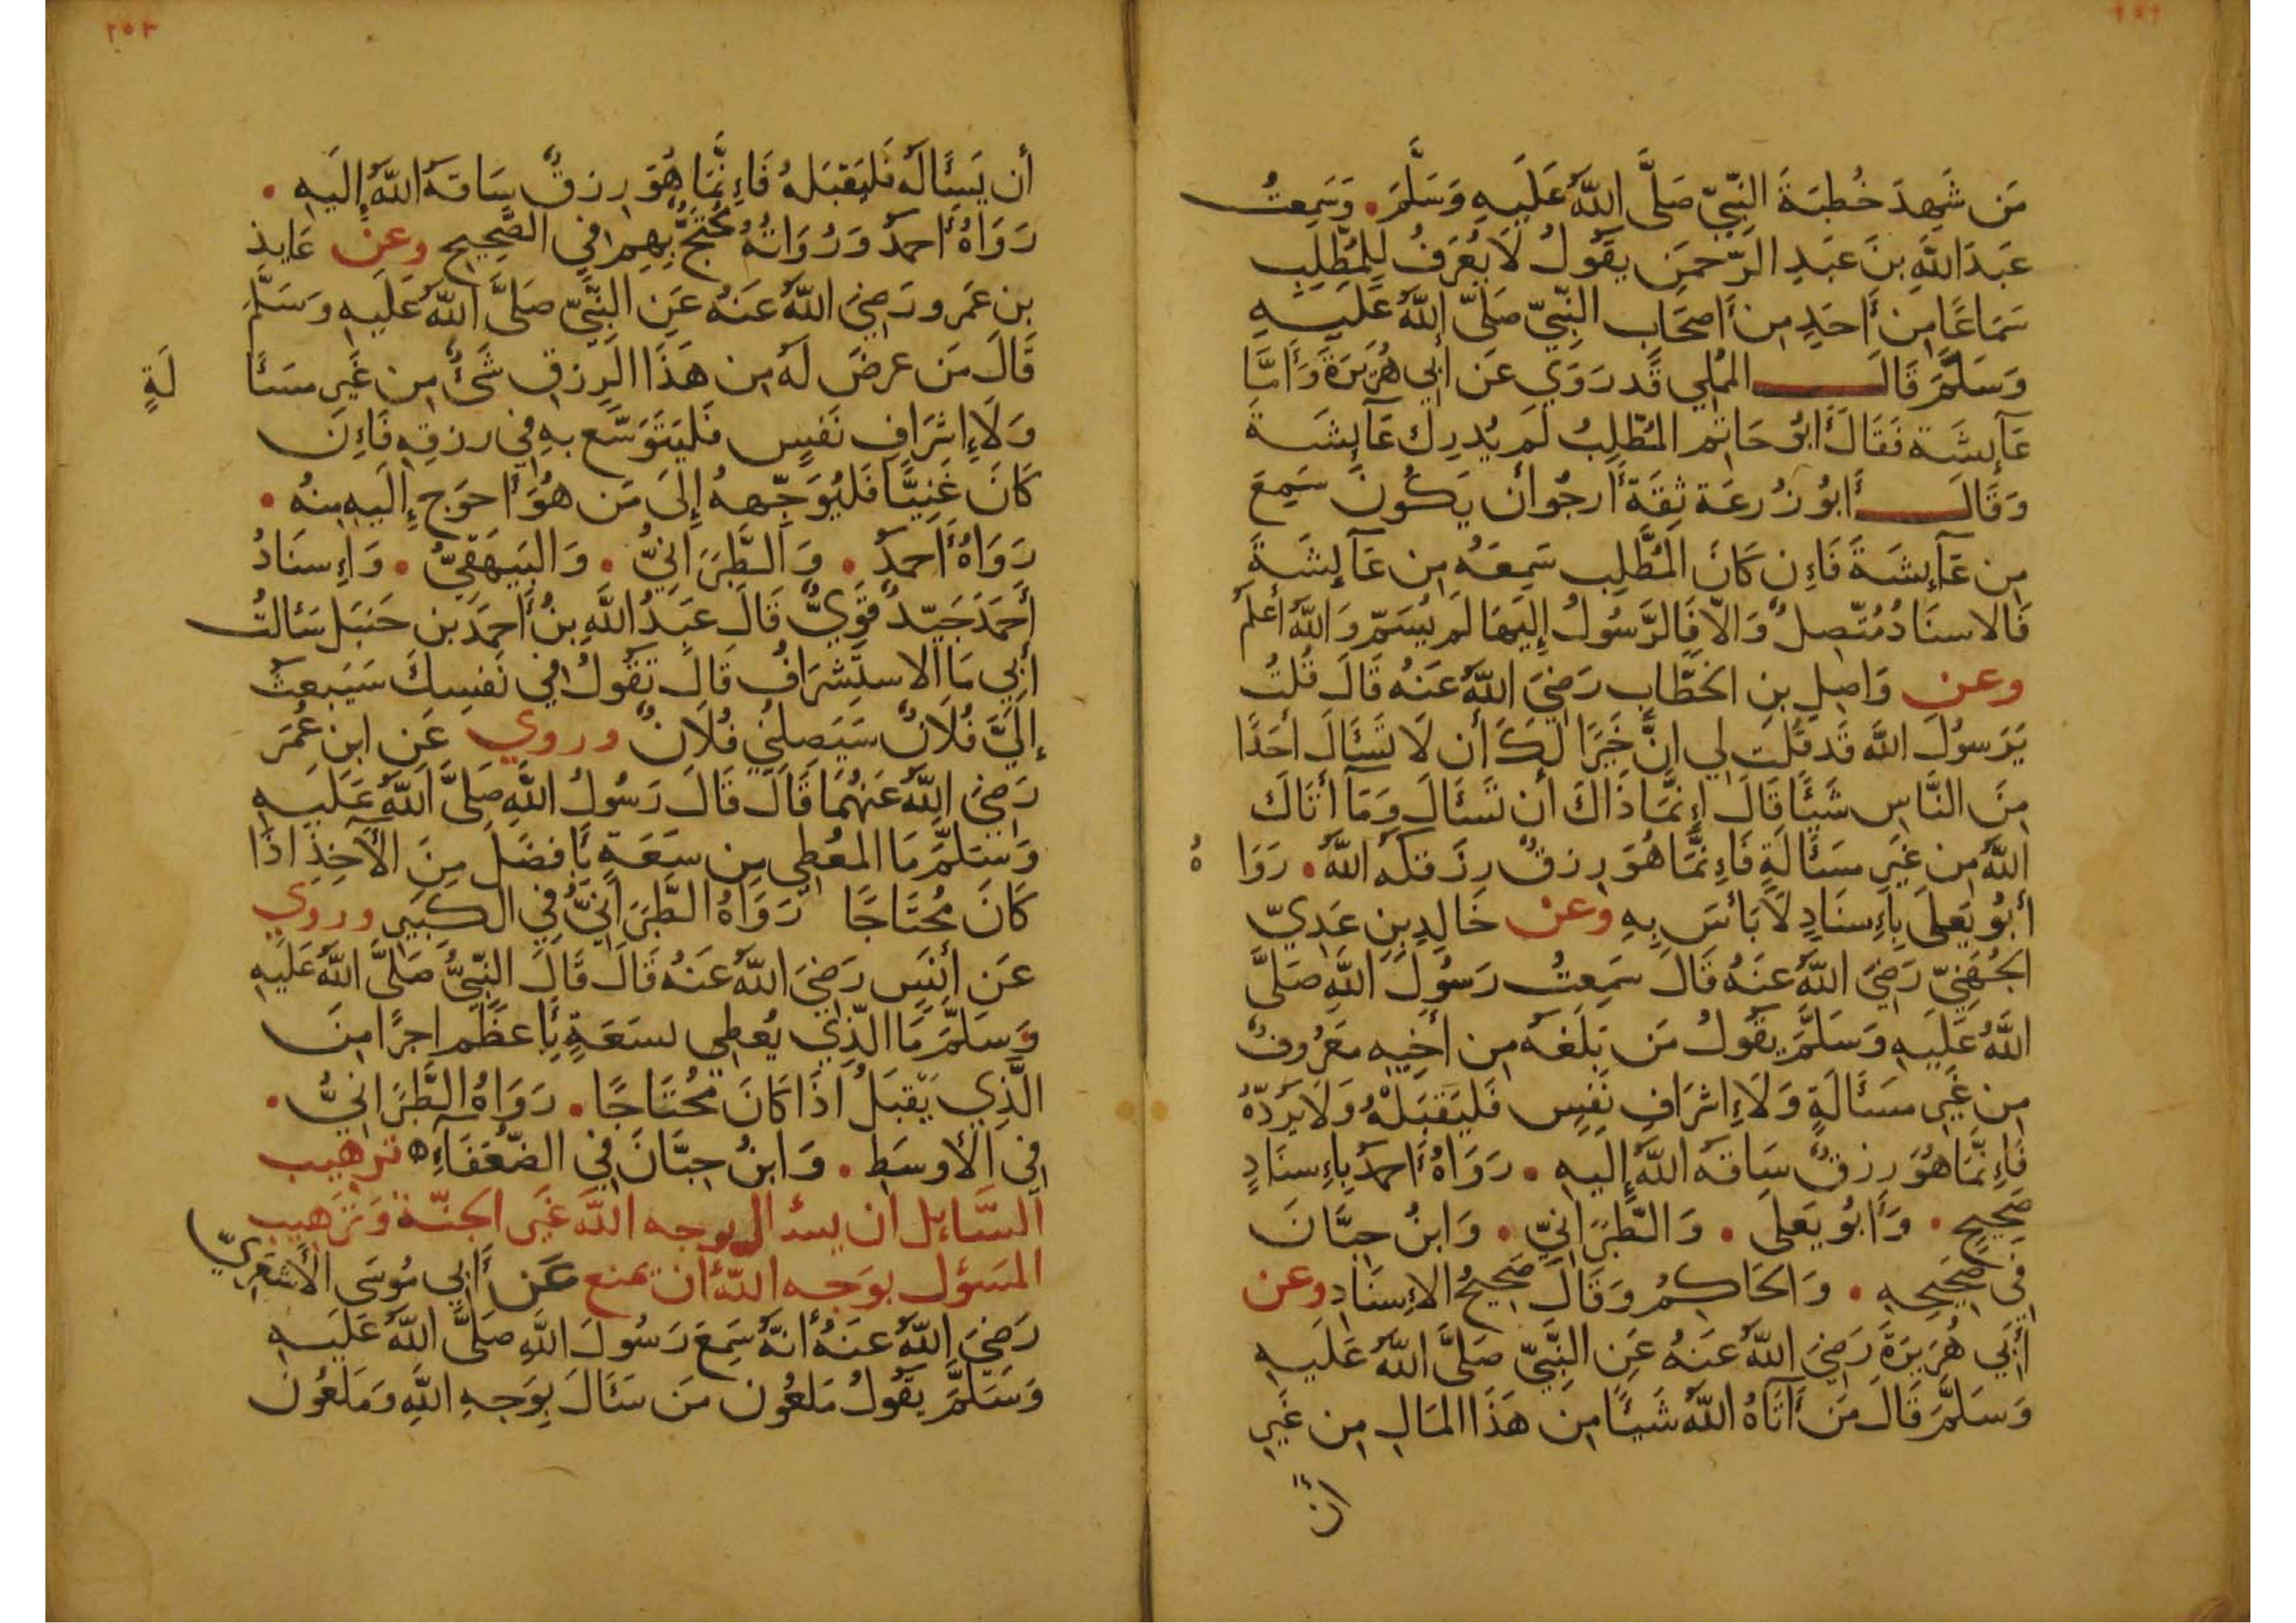 ٢٥٢
مَن شَهِدَ خُطبَةَ النَّبِيِّ صَلَّى اللَّهُ عَلَيهِ وَسَلَّمَ . وَسَمِعتُ
عَبدَ اللَّهِ بنَ عَبدِ الرَّحمَنِ يَقُولُ لَا يُعرَفُ لِلمُطَّلِبِ
سَمَاعًا مِن أَحَدٍ مِن أَصحَابِ النَّبِيِّ صَلَّى اللَّهُ عَلَيهِ
وَسَلَّمَ قَالَ المُملِي قَد رَوَي عَن أَبِي هُرَيرَةَ وَأَمَّا
عَآئِشَة فَقَالَ أَبُو حَاتِم المُطَّلِبُ لَم يُدرِك عَآئِشَةَ
وَقَالَ أَبُو زُرعَة ثِقَة أَرجُو أَن يَكُونَ سَمِعَ
مِن عَآئِشَةَ فَإِن كَانَ المُطَّلِب سَمِعَهُ مِن عَآئِشَةَ
فَالاسنَادُ مُتَّصِلٌ وَالَّا فَالرَّسُولُ إِلَيهَا لَم يُسَمّ وَاللَّهُ أَعلَمُ
وعن وَاصِلِ بنِ الخَطَّابِ رَضِيَ اللَّهُ عَنهُ قَالَ قُلتُ
يَرَسُولَ اللَّه قَد قُلت لِي انَّ خَيرًا لَكَ أَن لَا تَسئَالَ أَحَدًا
مِنَ النَّاسِ شَيئًا قَالَ إِنَّمَا ذَاكَ أَن تَسئَالَ وَمَآ أَتَاكَ
اللَّهُ مِن غَيرِ مَسئَالَةٍ فَإِنَّمَا هُوَ رِزقٌ رِزَقَكَهُ اللَّهُ . رَوَا هُ
أَبُو يَعلَى بِإِسنَادٍ لَا بَأسَ بِهِ وعن خَالِدِ بنِ عَدِيّ
الجُهَنِيّ رَضِيَ اللَّهُ عَنهُ قَالَ سَمِعتُ رَسُولَ اللَّهِ صَلَّى
اللَّهُ عَلَيهِ وَسَلَّمَ يَقُولُ مَن بَلَغَهُ مِن أَخِيهِ مَعرُوفٌ
مِن غَيرِ مَسئَالَةٍ وَلَا إِشرَافِ نَفسٍ فَليَقبَلْهُ وَلَا يَرُدَّهُ
فَإِنَّمَا هُوَ رِزقٌ سَاقَهُ اللَّهُ إِلَيهِ . رَوَاهُ أَحمَدُ بِإِسنَادٍ
صَحِيحٍ . وَأَبُو يَعلَى . وَالطَّبَرَانِيّ . وَابنُ حِبَّانَ
فِي صَحِيحِهِ . وَالحَاكِمُ وَقَالَ صَحِيحُ الإِسنَادِ وعن
أَبِي هُرَيرَةَ رَضِيَ اللَّهُ عَنهُ عَنِ النَّبِيِّ صَلَّى اللَّهُ عَلَيهِ
وَسَلَّمَ قَالَ مَن أَتَاهُ اللَّهُ شَيئًا مِن هَذَا المَالِ مِن غَيرِ
أن
٢٥٣
أَن يَسئَالَهُ فَليَقبَلهُ فَإِنَّمَا هُوَ رِزقٌ سَاقَهُ اللَّهُ إِلَيهِ .
رَوَاهُ أَحمَدُ وَرُوَاتُهُ مُحتَجٌّ بِهِم فِي الصَّحِيحِ وعن عَايذِ
بنِ عَمرو رَضِيَ اللَّهُ عَنهُ عَنِ النَّبِيِّ صَلَّى اللَّهُ عَلَيهِ وَسَلَّمَ
قَالَ مَن عرضَ لَهُ مِن هَذَا الرِزقِ شَئٌ مِن غَيرِ مَسئَا لَةٍ
وَلَا إِشرَافِ نَفسٍ فَليَتَوَسَّع بِهِ فِي رِزقِهِ فَإِن
كَانَ غَنِيًّا فَليُوَجِّههُ إِلَى مَن هُوَ أَحوَج إِلَيهِ مِنهُ .
رَوَاهُ أَحمَدُ . وَالطَّبَرَانِيُّ . وَالبَيهَقِيُّ . وَإِسنَادُ
أَحمَدَ جَيِّدٌ قَوِيٌّ قَالَ عَبدُ اللَّهِ بنُ أَحمَدَ بن حَنبَل سَئَالتُ
أَبِي مَا الاستِشرَافُ قَالَ تَقُولُ فِي نَفسِكَ سَيَبعَثُ
إِلَيَّ فُلَانٌ سَيَصِلُنِي فُلَانٌ وروي عَنِ ابنِ عُمَرَ
رَضِيَ اللَّهُ عَنهُمَا قَالَ قَالَ رَسُولُ اللَّهِ صَلَّى اللَّهُ عَلَيهِ
وَسَلَّمَ مَا المُعطِي مِن سَعَةٍ بِأَفضَلَ مِنَ الآخِذِ اذَا
كَانَ مُحتَاجًا رَوَاهُ الطَّبَرَانِيُّ فِي الكَبِيرِ وروي
عَن أَنَسٍ رَضِيَ اللَّهُ عَنهُ قَالَ قَالَ النَّبِيُّ صَلَّى اللَّهُ عَلَيهِ
وَسَلَّمَ مَا الَّذِي يُعطِي بسَعَةٍ بِأَعظَم اجرًا مِنَ
الَّذِي يَقبَلُ اذَا كَانَ مُحتَاجًا . رَوَاهُ الطَّبَرَانِيُّ .
فِي الأَوسَطِ . وَابنُ حِبَّانَ فِي الضُّعَفَآءِ ه ترهيب
السَّايل ان يسئال بوجه اللَّه غَير الجنّة وَتَرهيب
المَسؤل بوَجه اللَّه أن يمنع عَن أَبِي مُوسَى الأَشعَرِيِّ
رَضِيَ اللَّهُ عَنهُ أَنَّهُ سَمِعَ رَسُولَ اللَّهِ صَلَّى اللَّهُ عَلَيهِ
وَسَلَّمَ يَقُولُ مَلعُون مَن سَئَالَ بِوَجهِ اللَّهِ وَمَلعُون